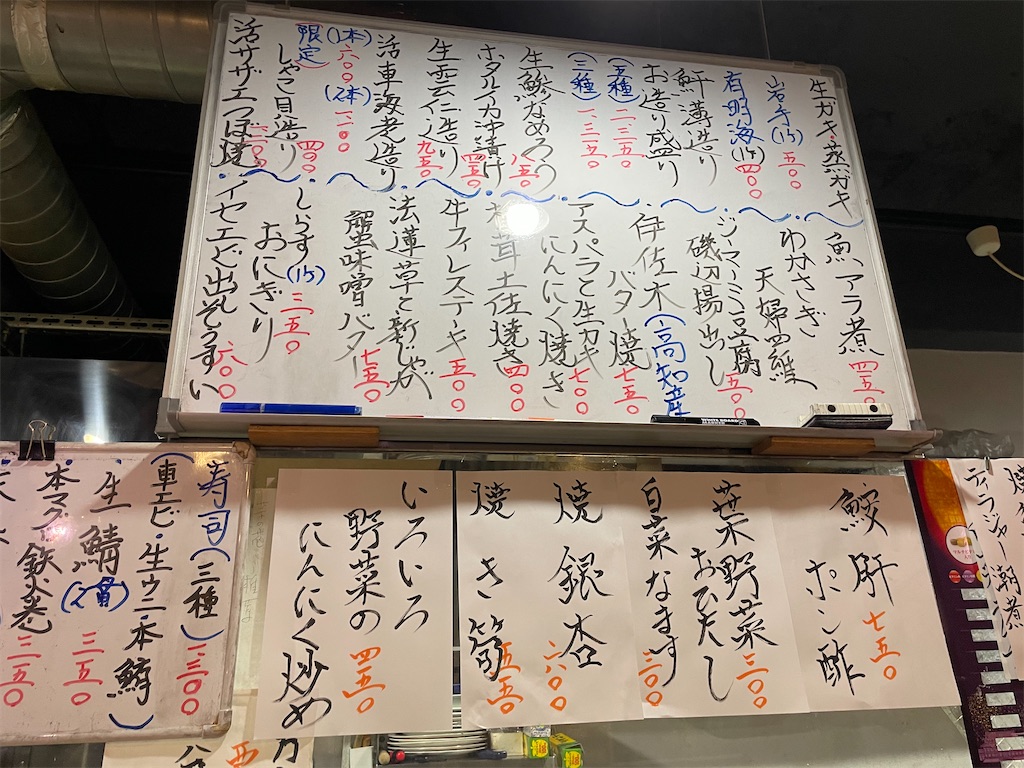 生ガキ・蒸ガキ
岩手(1ケ) 五〇〇
有明海(1ケ) 四〇〇
鮃薄造り
お造り盛り
(五種) 二、三五〇
(三種) 一、三五〇
生鯵なめろう 八五〇
ホタルイカ沖漬け 四五〇
生雲仁造り 九五〇
活車海老造り
(1本) 六〇〇
(2本) 一、一〇〇
限定
しゃこ貝造り 四〇〇
活サザエつぼ焼
魚、アラ煮 四五〇
わかさぎ
天婦羅
ジーマーミ豆腐
磯辺揚出し 五〇〇
伊佐木(高知産)
バター焼 七五〇
アスパラと生カキ
にんにく焼き 七〇〇
椎茸土佐焼き 四〇〇
牛フィレステーキ 五五〇
法蓮草と新じゃが
蟹味噌バター 七五〇
しらす(1ケ) 三五〇
おにぎり
イセエビ出汁ぞうすい 六〇〇
寿司(三種) 一、三〇〇
(車エビ・生ウニ・本鮪)
生鯖(2貫) 三五〇
本マグロ鉄火巻 三五〇
いろいろ
野菜の
にんにく炒め 四五〇
焼き筍 五五〇
焼銀杏 六〇〇
白菜なます 三〇〇
葉野菜
おひたし 三〇〇
鮟肝
ポン酢 七五〇
ティラジャー潮煮